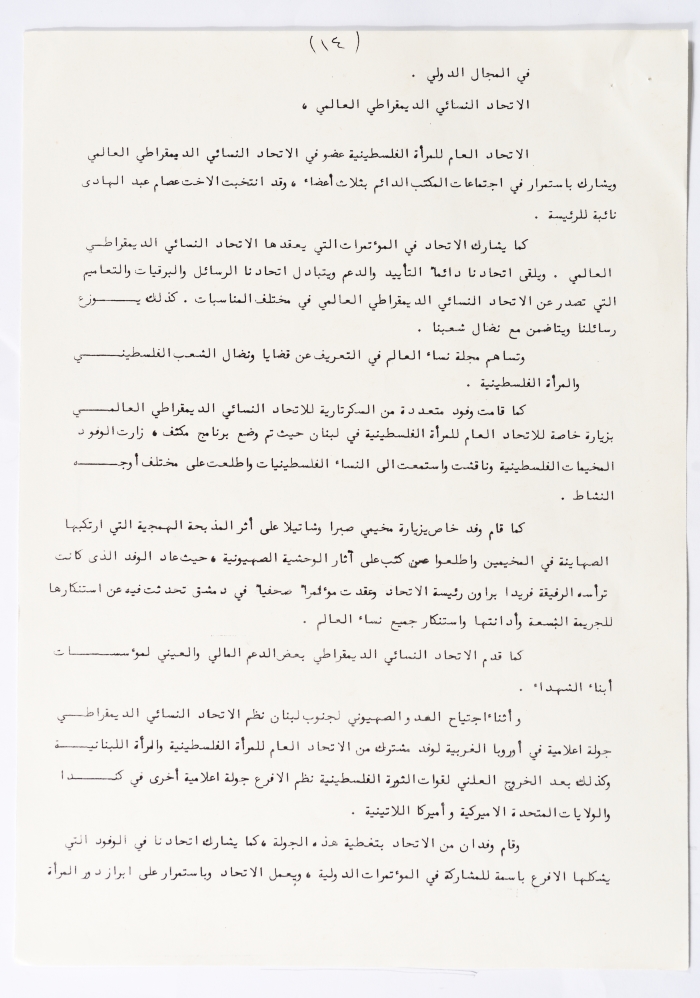 (١٤)
في المجال الدولي .
الاتحاد النسائي الديمقراطي العالمي ،
الاتحاد العام للمرأة الفلسطينية عضو في الاتحاد النسائي الديمقراطي العالمي
ويشارك باستمرار في اجتماعات المكتب الدائم بثلاث أعضاء ، وقد انتخبت الاخت عصام عبد الهادى
نائبة للرئيسة .
كما يشارك الاتحاد في المؤتمرات التي يعقدها الاتحاد النسائي الديمقراطـــي
العالمي . ويلقى اتحادنا دائما" التأييد والدعم ويتبادل اتحادنا الرسائل والبرقيات والتعاميم
التي تصدر عن الاتحاد النسائي الديمقراطي العالمي في مختلف المناسبات . كذلك يـــــوزع
رسائلنا ويتاضمن مع نضال شعبنا .
وتساهم مجلة نساء العالم في التعريف عن قضايا ونضال الشعب الفلسطينـــــي
والمرأة الفلسطينية .
كما قامت وفود متعددة من السكرتارية للاتحاد النسائي الديمقراطي العالمـــــي
بزيارة خاصة للاتحاد العام للمرأة الفلسطينية في لبنان حيث تم وضع برنامج مكثف ، زارت الوفود
المخيمات الفلسطينية وناقشت واستمعت الى النساء الفلسطينيات واطلعت على مختلف أوجـــــه
النشاط .
كما قام وفد خاص بزيارة مخيمي صبرا وشاتيلا على أثر المذبحة الهمجية التي ارتكبها
الصهاينة في المخيمين واطلعوا عن كثب على آثار الوحشية الصهيونية ، حيث عاد الوفد الذى كانت
ترأسه الرفيقة فريدا براون رئيسة الاتحاد وعقدت مؤتمرا" صحفيا" في دمشق تحدثت فيه عن استنكارها
للجريمة البشعة وأدانتها واستنكار جميع نساء العالم .
كما قدم الاتحاد النسائي الديمقراطي بعض الدعم المالي والعيني لمؤسســــــات
أبناء الشهداء .
وأثناء اجتياح العدو الصهيوني لجنوب لبنان نظم الاتحاد النسائي الديمقراطـــي
جولة اعلامية في أوروبا الغربية لوفد مشترك من الاتحاد العام للمرأة الفلسطينية والمرأة اللبنانيـــة
وكذلك بعد الخروج العلني لقوات الثورة الفلسطينية نظم الافرع جولة اعلامية أخرى في كنـــــدا
والولايات المتحدة الاميركية وأميركا اللاتينية .
وقام وفدان من الاتحاد بتغطية هذه الجولة ، كما يشارك اتحادنا في الوفود التي
يشكلها الافرع باسمة للمشاركة في المؤتمرات الدولية ، ويعمل الاتحاد وباستمرار على ابراز دور المرأة